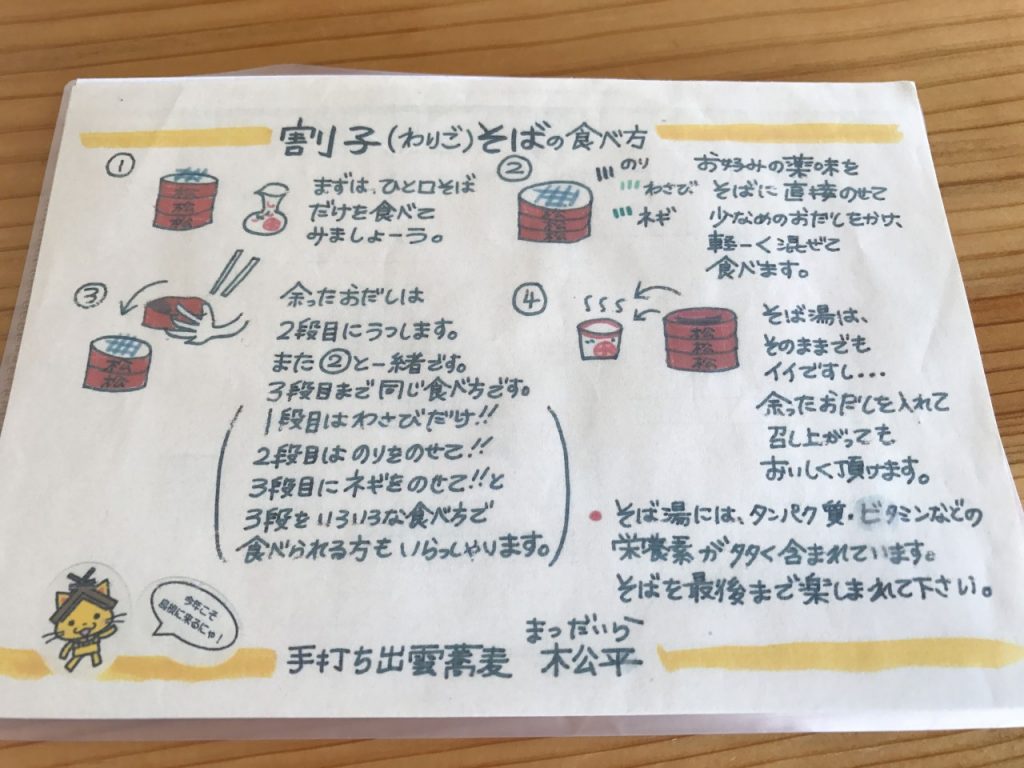 割子(わりご)そばの食べ方
①
まずは、ひと口そば
だけを食べて
みましょーう。
松
松
松
②
のり
わさび
ネギ
松
松
松
お好みの薬味を
そばに直接のせて
少なめのおだしをかけ、
軽ーく混ぜて
食べます。
③
松
松
余ったおだしは
2段目にうっします。
また②と一緒です。
3段目まで同じ食べ方です。
(1段目はわさびだけ!!
2段目はのりをのせて!!
3段目にネギをのせて!!と
3段をいろいろな食べ方で
食べられる方もいらっしゃります。)
④
松
松
松
そば湯は、
そのままでも
イイですし...
余ったおだしを入れて
召し上がっても
おいしく頂けます。
• そば湯には、タンパク質・ビタミンなどの
栄養素が多く含まれています。
そばを最後まで楽しまれて下さい。
今年こそ
島根に来るにゃ!
まっだいらー
手打ち出雲蕎麦 松平